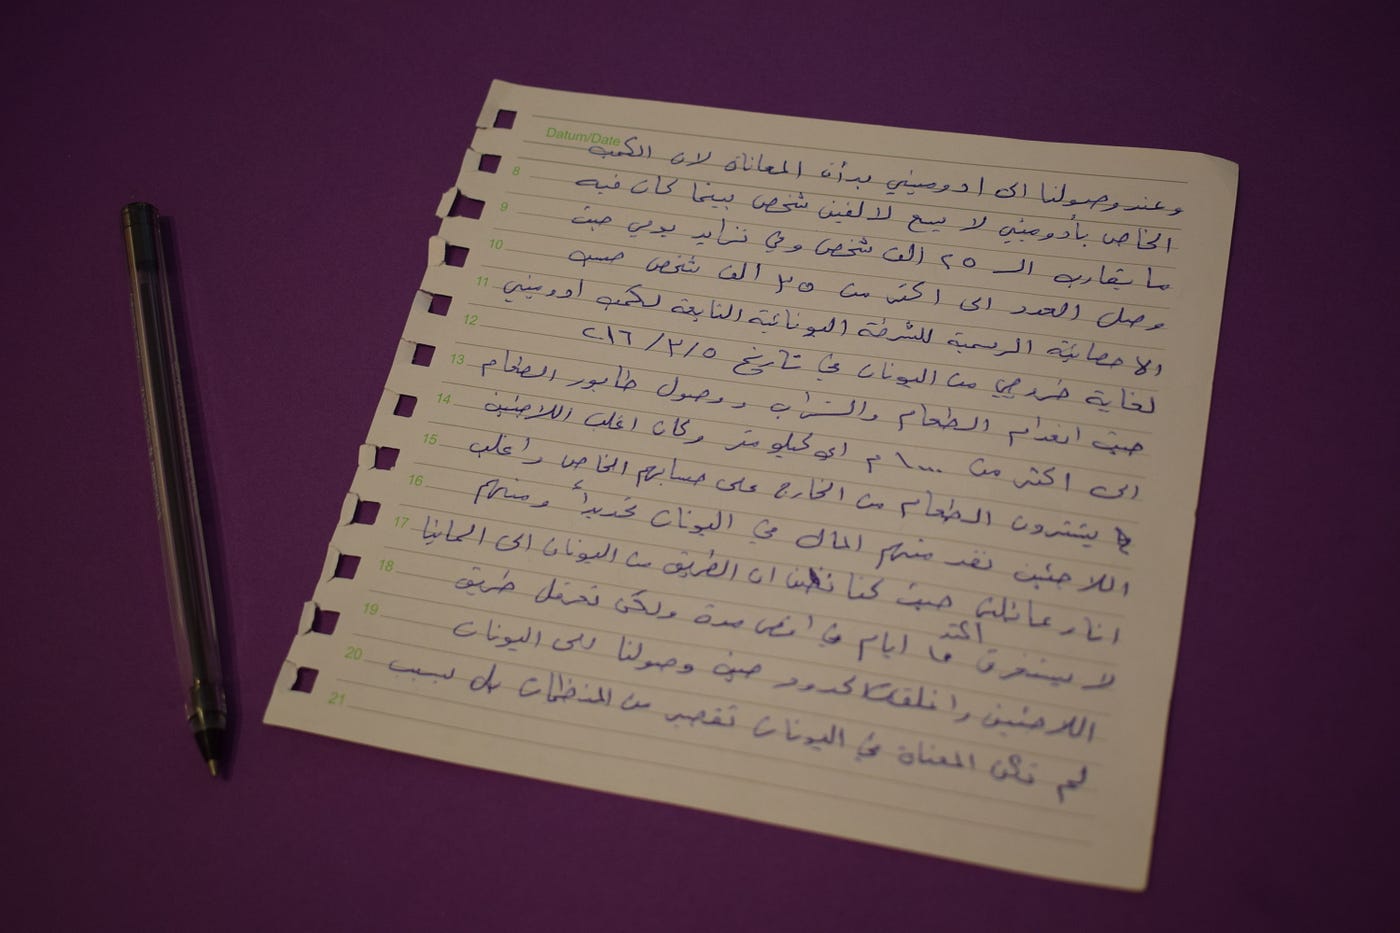 Datum/Date
وعند وصولنا الى ادوميني بدأت المعاناة لان الكمب
8
الخاص بأدوميني لا يسع لالفين شخص بينما كان فيه
9
ما يقارب الـ ٢٥ الف شخص وفي تزايد يومي حيث
10
وصل العدد الى اكثر من ٣٥ الف شخص حسب
11
الاحصائية الرسمية للشرطة اليونانية التابعة لكمب ادوميني
12
لغاية خروجي من اليونان في تاريخ ٢٠١٦/٣/٥
13
حيث انعدام الطعام والشراب ووصول طابور الطعام
14
الى اكثر من ١٠٠٠ م اي كيلو متر وكان اغلب اللاجئين
15
يشترون الطعام من الخارج على حسابهم الخاص واغلب
16
اللاجئين نفد منهم المال في اليونان تحديداً ومنهم
17
انا وعائلتي حيث كنا نظن ان الطريق من اليونان الى المانيا
18
لا يستغرق اكثر ايام في اقصى مدة ولكن تعرقل طريق
19
اللاجئين واغلقت الحدود حين وصولنا الى اليونان
20
لم تكن المعناة في اليونان تقصير من المنظمات بل بسبب
21